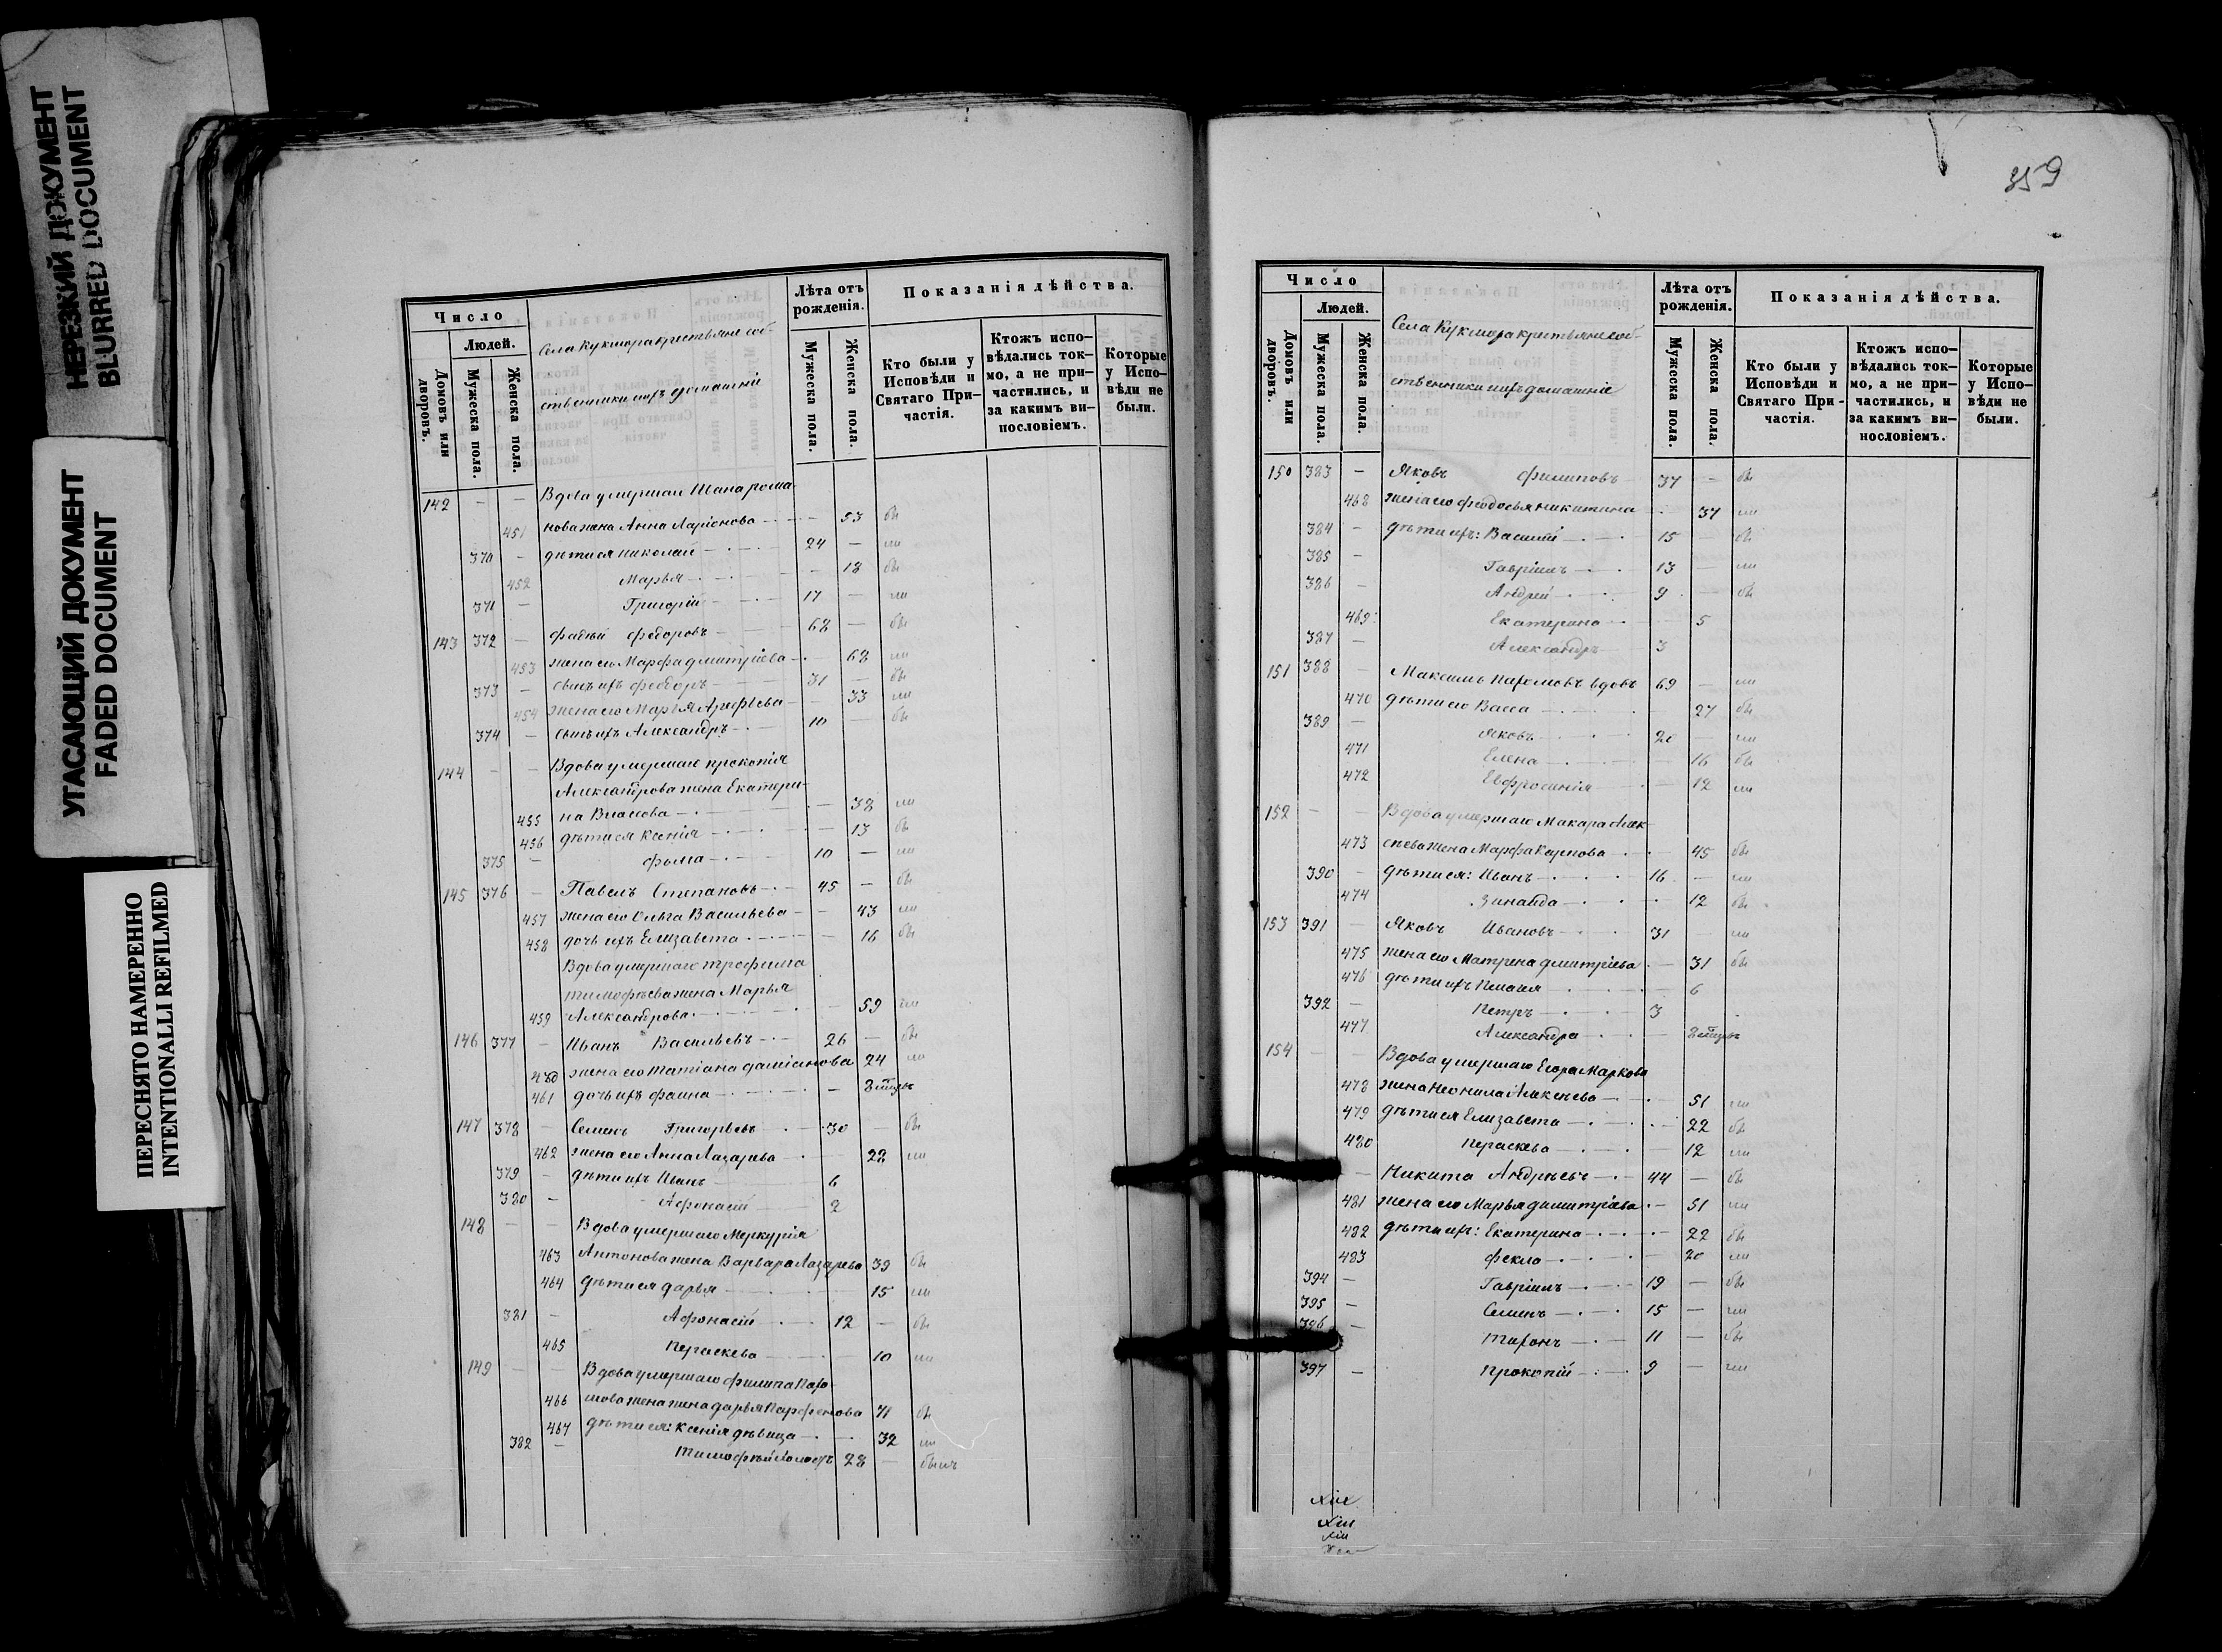 НЕРЕЗКИЙ ДОКУМЕНТ
BLURRED DOCUMENT
УГАСАЮЩИЙ ДОКУМЕНТ
FADED DOCUMENT
ПЕРЕСНЯТО НАМЕРЕННО
INTENTIONALLI REFILMED
Число
Людей.
Домовъ или дворовъ.
Мужеска пола.
Женска пола.
Села Кукмора крестьяне соб-
ственники и ихъ домашніе
Лѣта отъ рожденія.
Мужеска пола.
Женска пола.
Показанія дѣйства.
Кто были у Исповѣди и Святаго При-частія.
Ктожъ испо-вѣдались ток-мо, а не при-частились, и за какимъ ви-нословіемъ.
Которые у Испо-вѣди не были.
142 — — Вдова умершаго Ивана рома-
451 нова жена Анна Ларіонова — 53 бы
370 — дѣти ея Николай 24 — ли
452 Марья — 18 бы
371 — Григорій 17 — ли
143 372 — Фадѣй Федоровъ 68 — бы
453 жена его Марфа Дмитріева — 68 ли
373 — сынъ ихъ Феодоръ 31 — бы
454 жена его Марья Арефьева — 33 ли
374 — сынъ ихъ Александръ 10 — бы
144 — — Вдова умершаго Прокопія
Александрова жена Екатери-
455 на Власова — 38 ли
456 дѣти ея Ксенія — 13 бы
375 — Фома 10 — ли
145 376 — Павелъ Степановъ 45 — бы
457 жена его Ольга Васильева — 43 ли
458 дочь ихъ Елизавета — 16 бы
Вдова умершаго Трофима
Тимофѣева жена Марья
459 Александрова — 59 ли
146 377 — Иванъ Васильевъ 26 — бы
460 жена его Татіана Даміанова 24 ли
461 дочь ихъ Фаина — 8 мѣсяц
147 378 — Семенъ Григорьевъ 30 — бы
462 жена его Анна Лазарева — 28 ли
379 — дѣти ихъ Иванъ 6
380 — Афонасій 2
148 — — Вдова умершаго Меркурія
463 Антонова жена Варвара Лазарева 39 бы
464 дѣти ея Дарья — 15 ли
381 — Афонасій 12 — бы
465 Пераскева — 10 ли
149 — — Вдова умершаго Филипа Пахо-
466 мова жена жена Дарья Парфенова 71 бы
467 дѣти ея: Ксенія дѣвица — 32 ли
382 — Тимофѣй холостъ 28 — былъ
359
Число
Людей.
Домовъ или дворовъ.
Мужеска пола.
Женска пола.
Села Кукмора крестьяне соб-
ственники и ихъ домашніе
Лѣта отъ рожденія.
Мужеска пола.
Женска пола.
Показанія дѣйства.
Кто были у Исповѣди и Святаго При-частія.
Ктожъ испо-вѣдались ток-мо, а не при-частились, и за какимъ ви-нословіемъ.
Которые у Испо-вѣди не были.
150 383 — Яковъ Филиповъ 37 — бы
468 жена его Феодосья Никитина 37 ли
384 — дѣти ихъ: Василій 15 — бы
385 — Гавріилъ 13 — ли
386 — Андрей 9 — бы
469 Екатерина 5
387 — Александръ 3
151 388 — Максимъ Пахомовъ вдовъ 69 — ли
470 дѣти его Васса — 27 бы
389 — Яковъ 20 — ли
471 Елена — 16 бы
472 Евфросинія — 12 ли
152 — — Вдова умершаго Макара Алек-
473 сѣева жена Марфа Карпова — 45 бы
390 — дѣти ея: Иванъ 16 — ли
474 Зинаида — 12 бы
153 391 — Яковъ Ивановъ 31 — ли
475 жена его Матрена Дмитріева — 31 бы
476 дѣти ихъ Пелагея — 6
392 — Петръ 3
477 Александра — 8 мѣсяц
154 — — Вдова умершаго Егора Маркова
478 жена Неонила Алексѣева — 51 ли
479 дѣти ея Елизавета — 22 бы
480 Пераскева — 12 ли
— Никита Андрѣевъ 44 — бы
481 жена его Марья Димитріева — 51 ли
482 дѣти ихъ: Екатерина — 22 бы
483 Фекла — 20 ли
394 — Гавріилъ 19 — бы
395 — Семенъ 15 — ли
396 — Тихонъ 11 — бы
397 — Прокопій 9 — ли